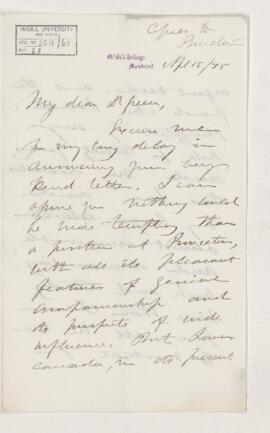 McGILL UNIVERSITY
ARCHIVES
ACC. NO. 2211/60
REF. 67
Copies to
Princeton
McGill College,
Montreal.
Apl 15/78
My dear Dr Green,
Excuse me
for my long delay in
answering your very
kind letter. I can
assure you nothing could
be more tempting than
a position at Princeton,
with all its pleasant
features of genial
companionship and
its prospects of wide
influence. But Lower
Canada, in its present